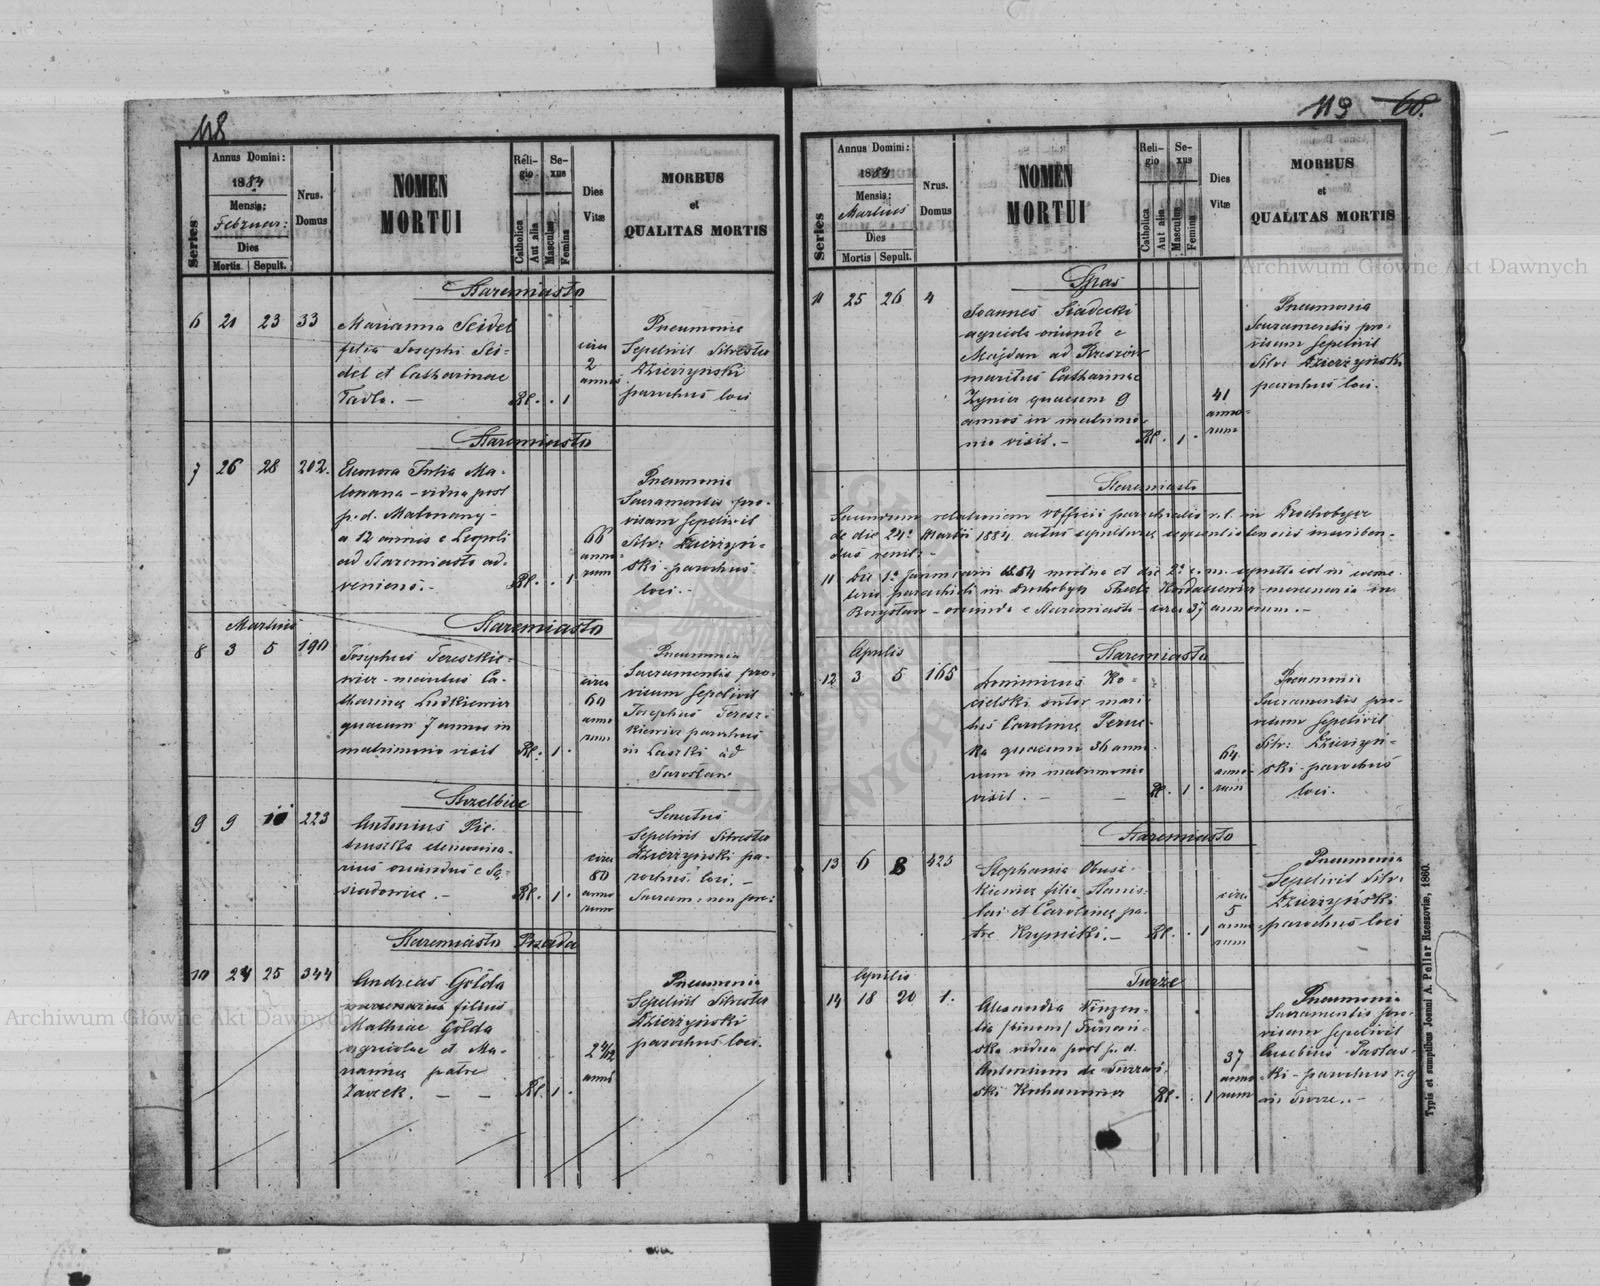 118
Series
Annus Domini:
1884
Mensis:
Februar:
Dies
Mortis Sepult.
Nrus. Domus
NOMEN MORTUI
Religio
Catholica
Aut alia
Sexus
Masculus
Femina
Dies Vitæ
MORBUS et QUALITAS MORTIS
Staremiasto
6 21 23 33
Marianna Seidel
filia Josephi Sei-
del et Catharinae
Rl. 1
circa
2
annos
Pneumonia
Sepelivit Silvester
Dzierżyński
parochus loci
Staremiasto
7 26 28 212.
Eleonora Julia Ma-
lowana - vidua post
p. d. Malowany -
a 12 annis e Leopoli
ad Staremiasto ad-
veniens. -
Rl. 1
66
anno-
rum
Pneumonia
Sacramentis pro-
visam sepelivit
Silv: Dzierżyń-
ski - parochus
loci. -
Martius
Staremiasto
8 3 5 190
Josephus Tereszkie-
wicz - maritus Ca-
tharinę Ludkiewicz
quacum 7 annos in
matrimonio vixit
Rl. 1
circa
60
anno
rum
Pneumonia
Sacramentis pro-
visum sepelivit
Josephus Teresz-
kiewicz parochus
in Laszki ad
Jarosław
Strzelbice
9 9 223
Antonius Pie-
truszka elemosina-
rius oriundus e Są-
siadowice. -
Rl. 1
circa
80
anno
rum
Senectus
Sepelivit Silvester
Dzierżyński pa-
rochus loci. -
Sacram: non prov:
Staremiasto
10 24 25 344
Andreas Gołda
mercenarius filius
Mathiae Gołda
agricolae et Ma-
riannę patre
Rl. 1
2 4/12
anni
Pneumonia
Sepelivit Silvester
Dzierżyński
parochus loci.
119 60.
Series
Annus Domini:
1884
Mensis:
Martius
Dies
Mortis Sepult.
Nrus. Domus
NOMEN MORTUI
Religio
Catholica
Aut alia
Sexus
Masculus
Femina
Dies Vitæ
MORBUS et QUALITAS MORTIS
Spas
11 25 26 4
Joannes Siadecki
agricola oriundus e
Majdan ad Rzeszów
maritus Catharinae
quacum 9
annos in matrimo-
nio vixit. -
Rl. 1
41
anno-
rum
Pneumonia
Sacramentis pro-
visum sepelivit
Silv: Dzierżyński
parochus loci.
Staremiasto
Secundum relationem officii parochialis r. l. in Drohobycz
de die 24ª Martii 1884 actus sepulturę sequentis
11 Die 1ª Januarii 1884 mortua et die 2ª e. m. sepulta est in coeme-
terio parochiali in Drohobycz mercenaria in
Borysław - oriunda e Staremiasto - circa 37 annorum. -
Aprilis
Staremiasto
12 3 5 165
Dominicus Ko-
cielski sutor mari-
tus Carolinę
quacum 36 anno-
rum in matrimonio
vixit. -
Rl. 1
64
anno-
rum
Pneumonia
Sacramentis pro-
visum sepelivit
Silv: Dzierżyń-
ski - parochus
loci.
Staremiasto
13 6 8 425
Stephania
filia Stanis-
lai et Carolinę pa-
tre Krynicki. -
Rl. 1
circa
5
anno
rum
Pneumonia
Sepelivit Silv:
Dzierżyński
parochus loci
Aprilis
Turze
14 18 20 1.
Alexandra Vinzen-
tia /binom/ Turzań-
ska vidua post p. d.
Antonium de Turzań-
ski
Rl. 1
37
anno
rum
Pneumonia
Sacramentis pro-
visam sepelivit
Eusebius
parochus r. g.
in Turze. -
Typis et sumptibus Joanni A. Pellar Rzeszoviæ, 1860.
Archiwum Główne Akt Dawnych
Archiwum Główne Akt Dawnych